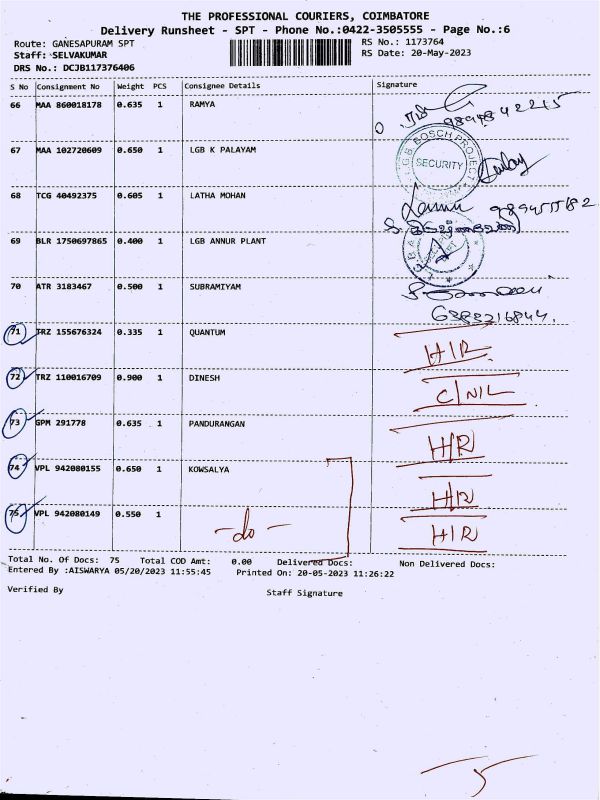 THE PROFESSIONAL COURIERS, COIMBATORE
Delivery Runsheet - SPT - Phone No.:0422-3505555 - Page No.:6
Route: GANESAPURAM SPT
RS No.: 1173764
Staff: SELVAKUMAR
RS Date: 20-May-2023
DRS No.: DCJB117376406
S No Consignment No Weight PCS Consignee Details Signature
66 MAA 860018178 0.635 1 RAMYA
67 MAA 102720609 0.650 1 LGB K PALAYAM
L.G.B BOSCH PROJECT
SECURITY
68 TCG 40492375 0.605 1 LATHA MOHAN
69 BLR 1750697865 0.400 1 LGB ANNUR PLANT
70 ATR 3183467 0.500 1 SUBRAMIYAM
6383216844.
71 TRZ 155676324 0.335 1 QUANTUM H/R
72 TRZ 110016709 0.900 1 DINESH C/NIL
73 GPM 291778 0.635 1 PANDURANGAN H/R
74 VPL 942080155 0.650 1 KOWSALYA H/R
75 VPL 942080149 0.550 1 -do- H/R
Total No. Of Docs: 75 Total COD Amt: 0.00 Delivered Docs: Non Delivered Docs:
Entered By :AISWARYA 05/20/2023 11:55:45 Printed On: 20-05-2023 11:26:22
Verified By Staff Signature
5